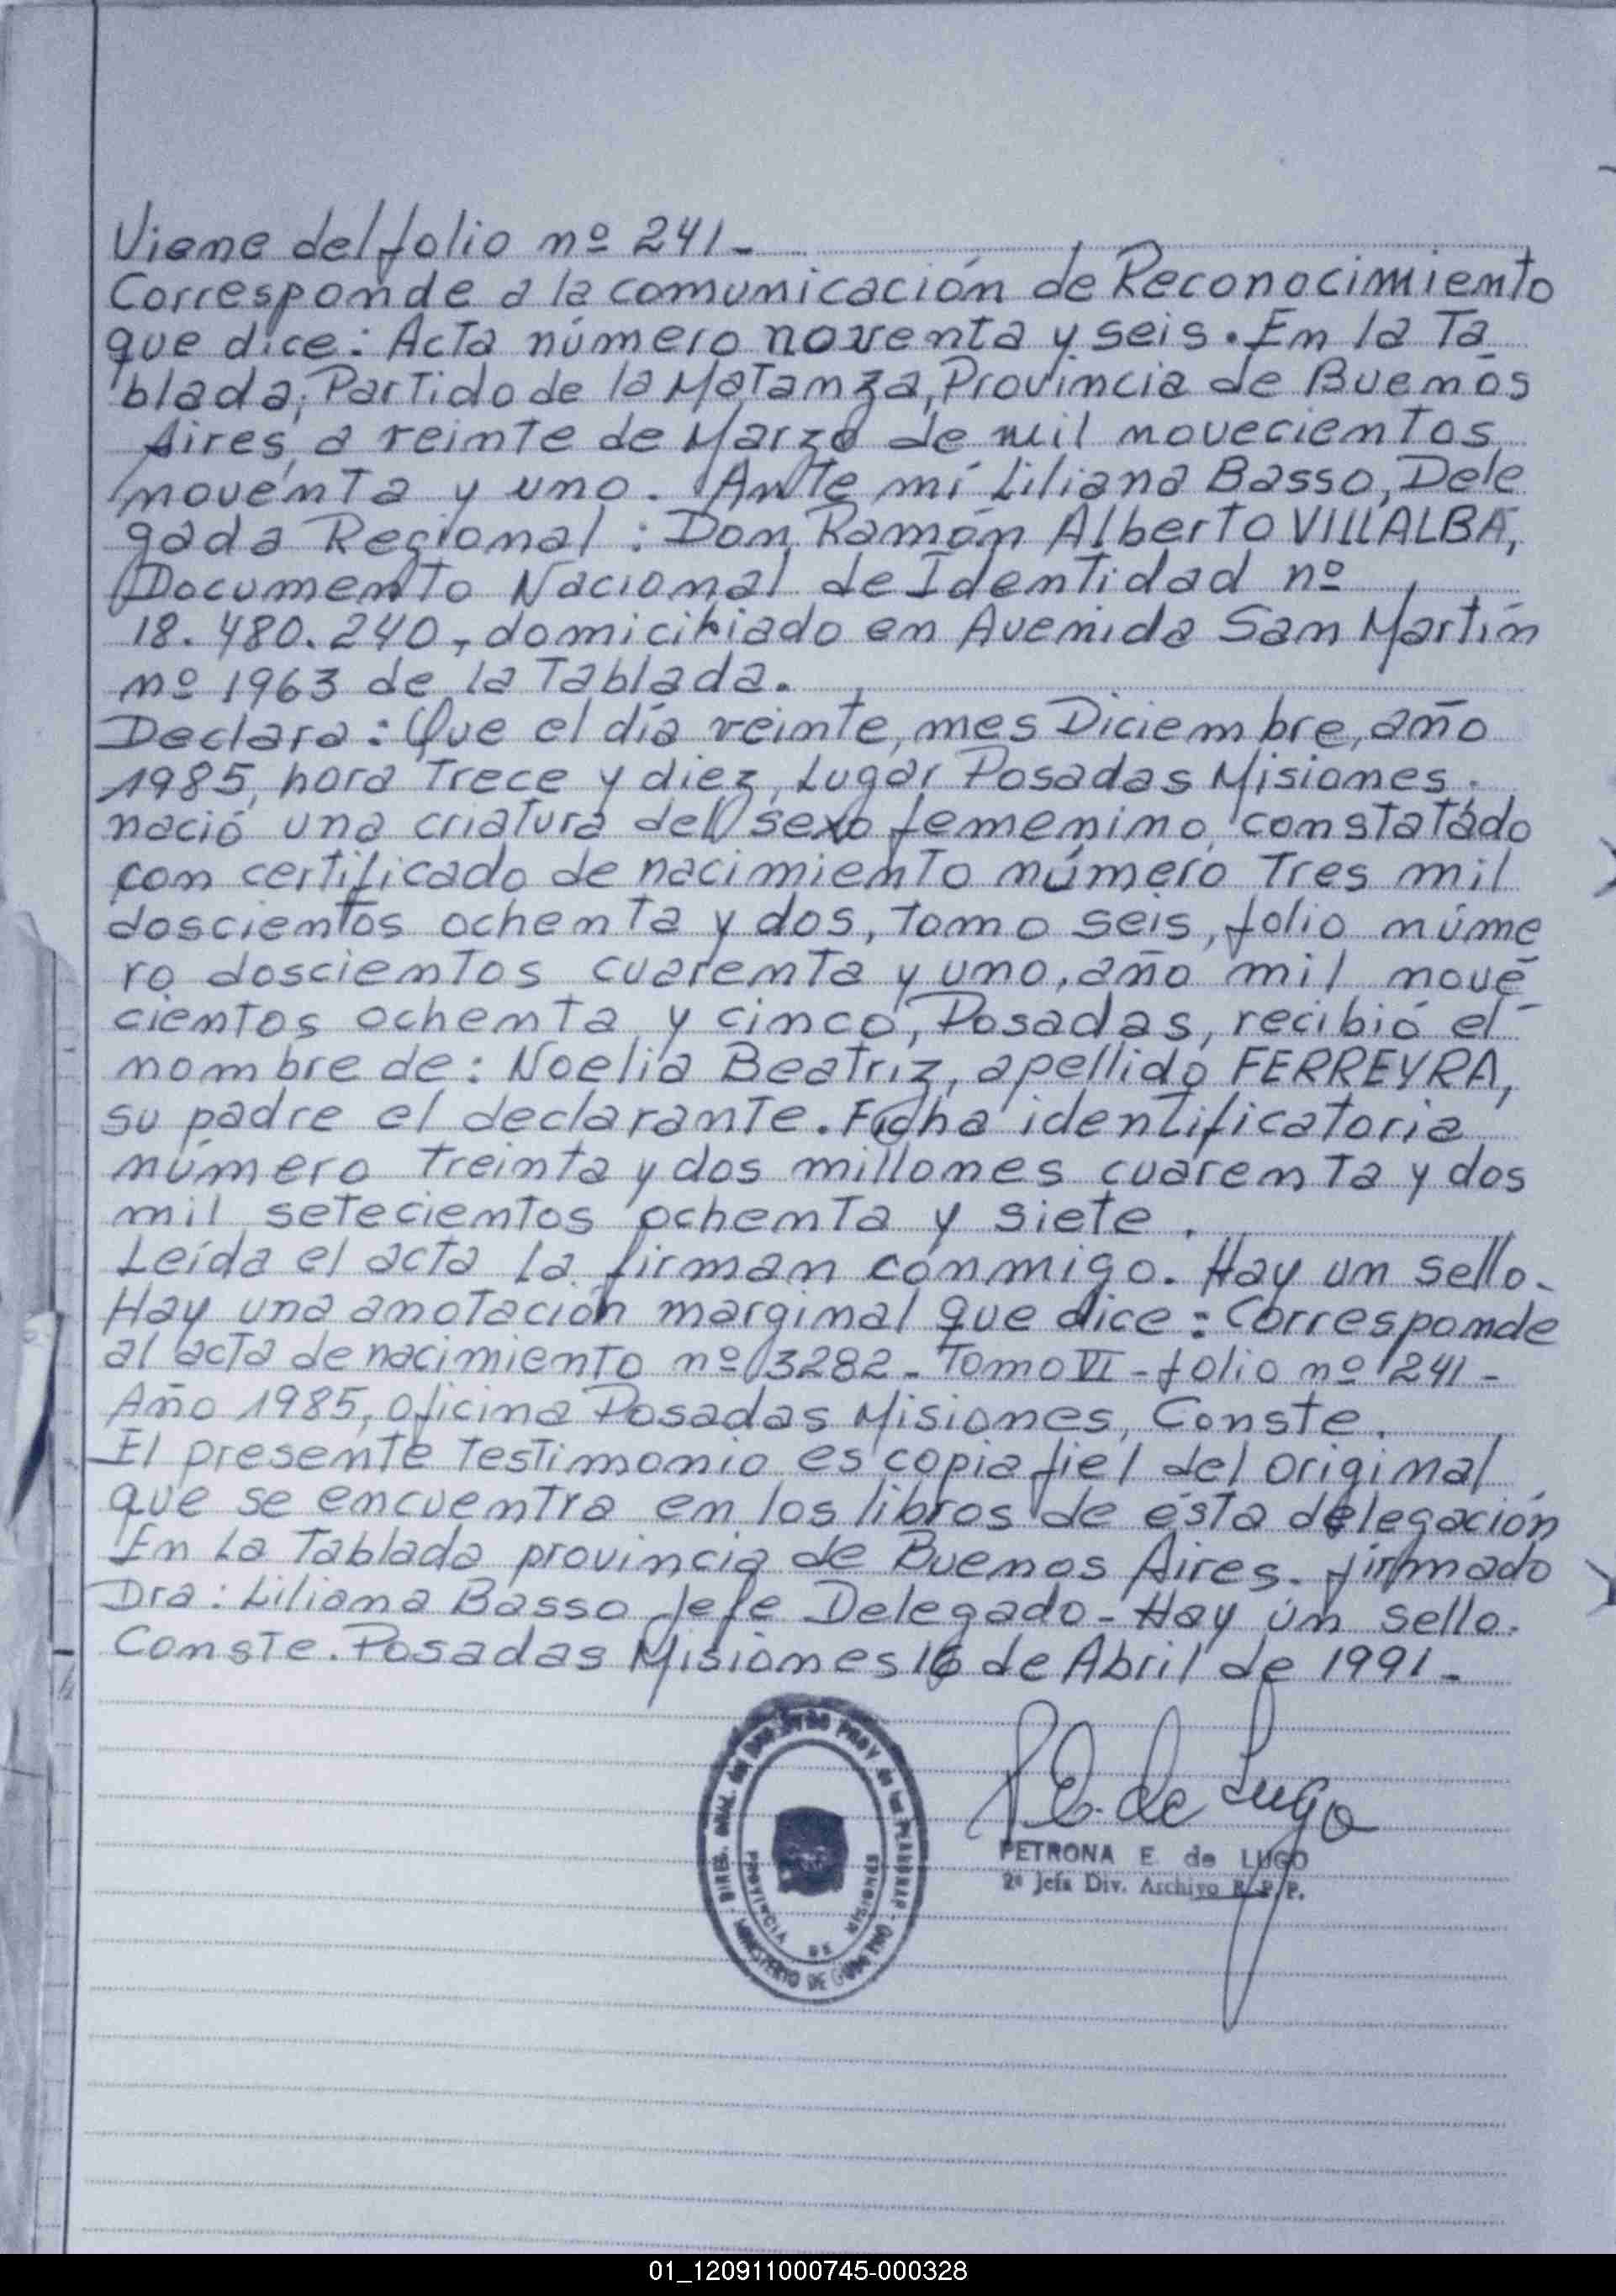 Viene del folio nº 241-
Corresponde a la comunicación de Reconocimiento
que dice: Acta número noventa y seis. En la Ta
blada, Partido de la Matanza, Provincia de Buenos
Aires, a veinte de Marzo de mil novecientos
noventa y uno. Ante mí Liliana Basso, Dele
gada Regional: Don Ramón Alberto VILLALBA,
Documento Nacional de Identidad nº
18.480.240, domiciliado en Avenida San Martín
nº 1963 de la Tablada.
Declara: Que el día veinte, mes Diciembre, año
1985, hora Trece y diez, Lugar Posadas Misiones.
nació una criatura del sexo femenino, constatado
con certificado de nacimiento número Tres mil
doscientos ochenta y dos, Tomo seis, folio núme
ro doscientos cuarenta y uno, año mil nove
cientos ochenta y cinco, Posadas, recibió el
nombre de: Noelia Beatriz, apellido FERREYRA,
su padre el declarante. Ficha identificatoria
número Treinta y dos millones cuarenta y dos
mil setecientos ochenta y siete.
Leída el acta la firman conmigo. Hay un sello.
Hay una anotación marginal que dice: Corresponde
al acta de nacimiento nº 3282- Tomo VI - folio nº 241-
Año 1985, Oficina Posadas Misiones, Conste.
El presente Testimonio es copia fiel del original
que se encuentra en los libros de ésta delegación
En La Tablada provincia de Buenos Aires. firmado
Dra: Liliana Basso Jefe Delegado- Hay un sello.
Conste. Posadas Misiones 16 de Abril de 1991-
P E. de Lugo
PETRONA E. de LUGO
2ª Jefa Div. Archivo R. P. P.
PROVINCIA DE MISIONES
MINISTERIO DE GOBIERNO
01_120911000745-000328